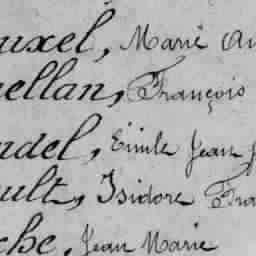 uxel, Marie An
ellan, François
ndel, Emile Jean J
ult, Isidore Fra
che, Jean Marie